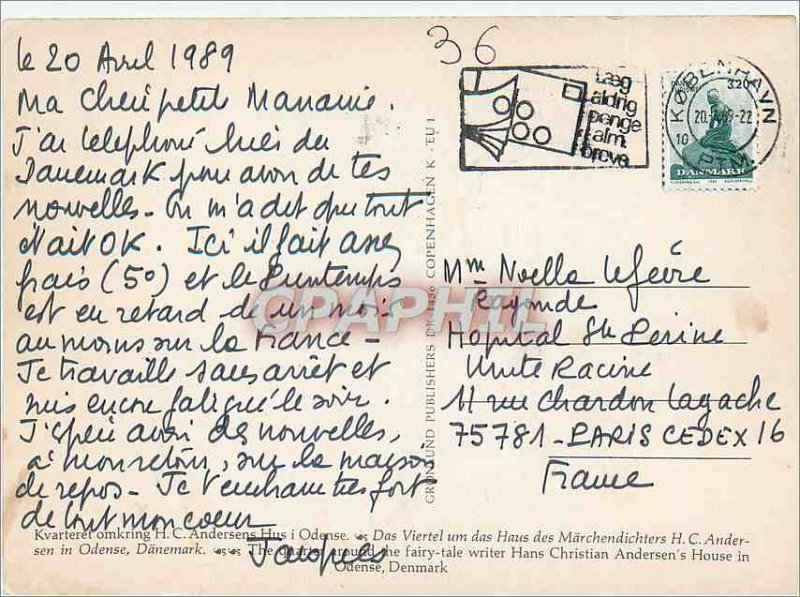 36
le 20 Avril 1989
Ma Cherie petite Mamamie.
J'ai telephoné hier du
Danemark pour avoir de tes
nouvelles - On m'a dit que tout
était OK. Ici il fait assez
frais (5°) et le Printemps
est en retard de un mois
au moins sur la France -
Je travaille sans arrêt et
suis encore fatigué le soir.
J'espère avoir des nouvelles,
à mon retour, sur la maison
de repos - Je t'embrasse très fort
de tout mon coeur
Jacques
Læg
aldrig
penge
i alm.
breve
KØBENHAVN
20.4.89-22
10
PTM
3.20
DANMARK
GRØNLUND PUBLISHERS DK 1456 COPENHAGEN K · EU 1
CPAPHIL
Mme Noella Lefèvre
Hopital Ste Perine
Unite Racine
11 rue Chardon Lagache
75781 - PARIS CEDEX 16
France
Kvarteret omkring H. C. Andersens Hus i Odense. Das Viertel um das Haus des Märchendichters H. C. Ander-
sen in Odense, Dänemark. The quarter around the fairy-tale writer Hans Christian Andersen's House in
Odense, Denmark